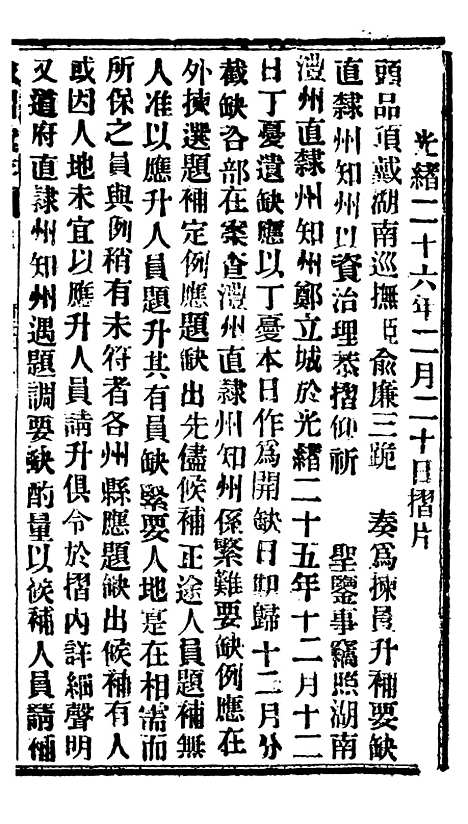 光緒二十六年二月二十日摺片
頭品頂戴湖南巡撫臣俞廉三跪 奏爲揀員升補要缺
直隸州知州以資治理恭摺仰祈 聖鑒事竊照湖南
澧州直隸州知州鄭立城於光緒二十五年十二月十二
日丁憂遺缺應以丁憂本日作爲開缺日期歸十二月分
截缺咨部在案查澧州直隸州知州係繁難要缺例應在
外揀選題補定例應題缺出先儘候補正途人員題補無
人准以應升人員題升其有員缺緊要人地寔在相需而
所保之員與例稍有未符者各州縣應題缺出候補有人
或因人地未宜以應升人員請升俱令於摺內詳細聲明
又道府直隸州知州遇題調要缺酌量以候補人員請補